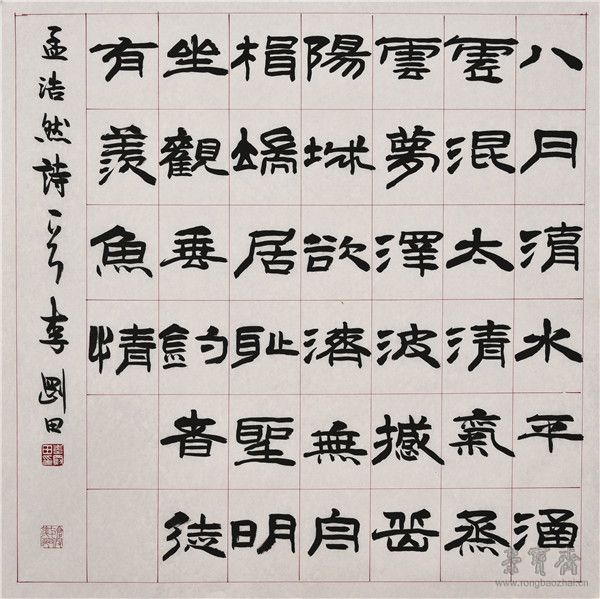 八月湖水平涵
虛混太清氣蒸
雲夢澤波撼岳
陽城欲濟無舟
楫端居耻聖明
坐觀垂釣者徒
有羨魚情
孟浩然詩一首 李剛田
榮寶齋
www.rongbaozhai.cn